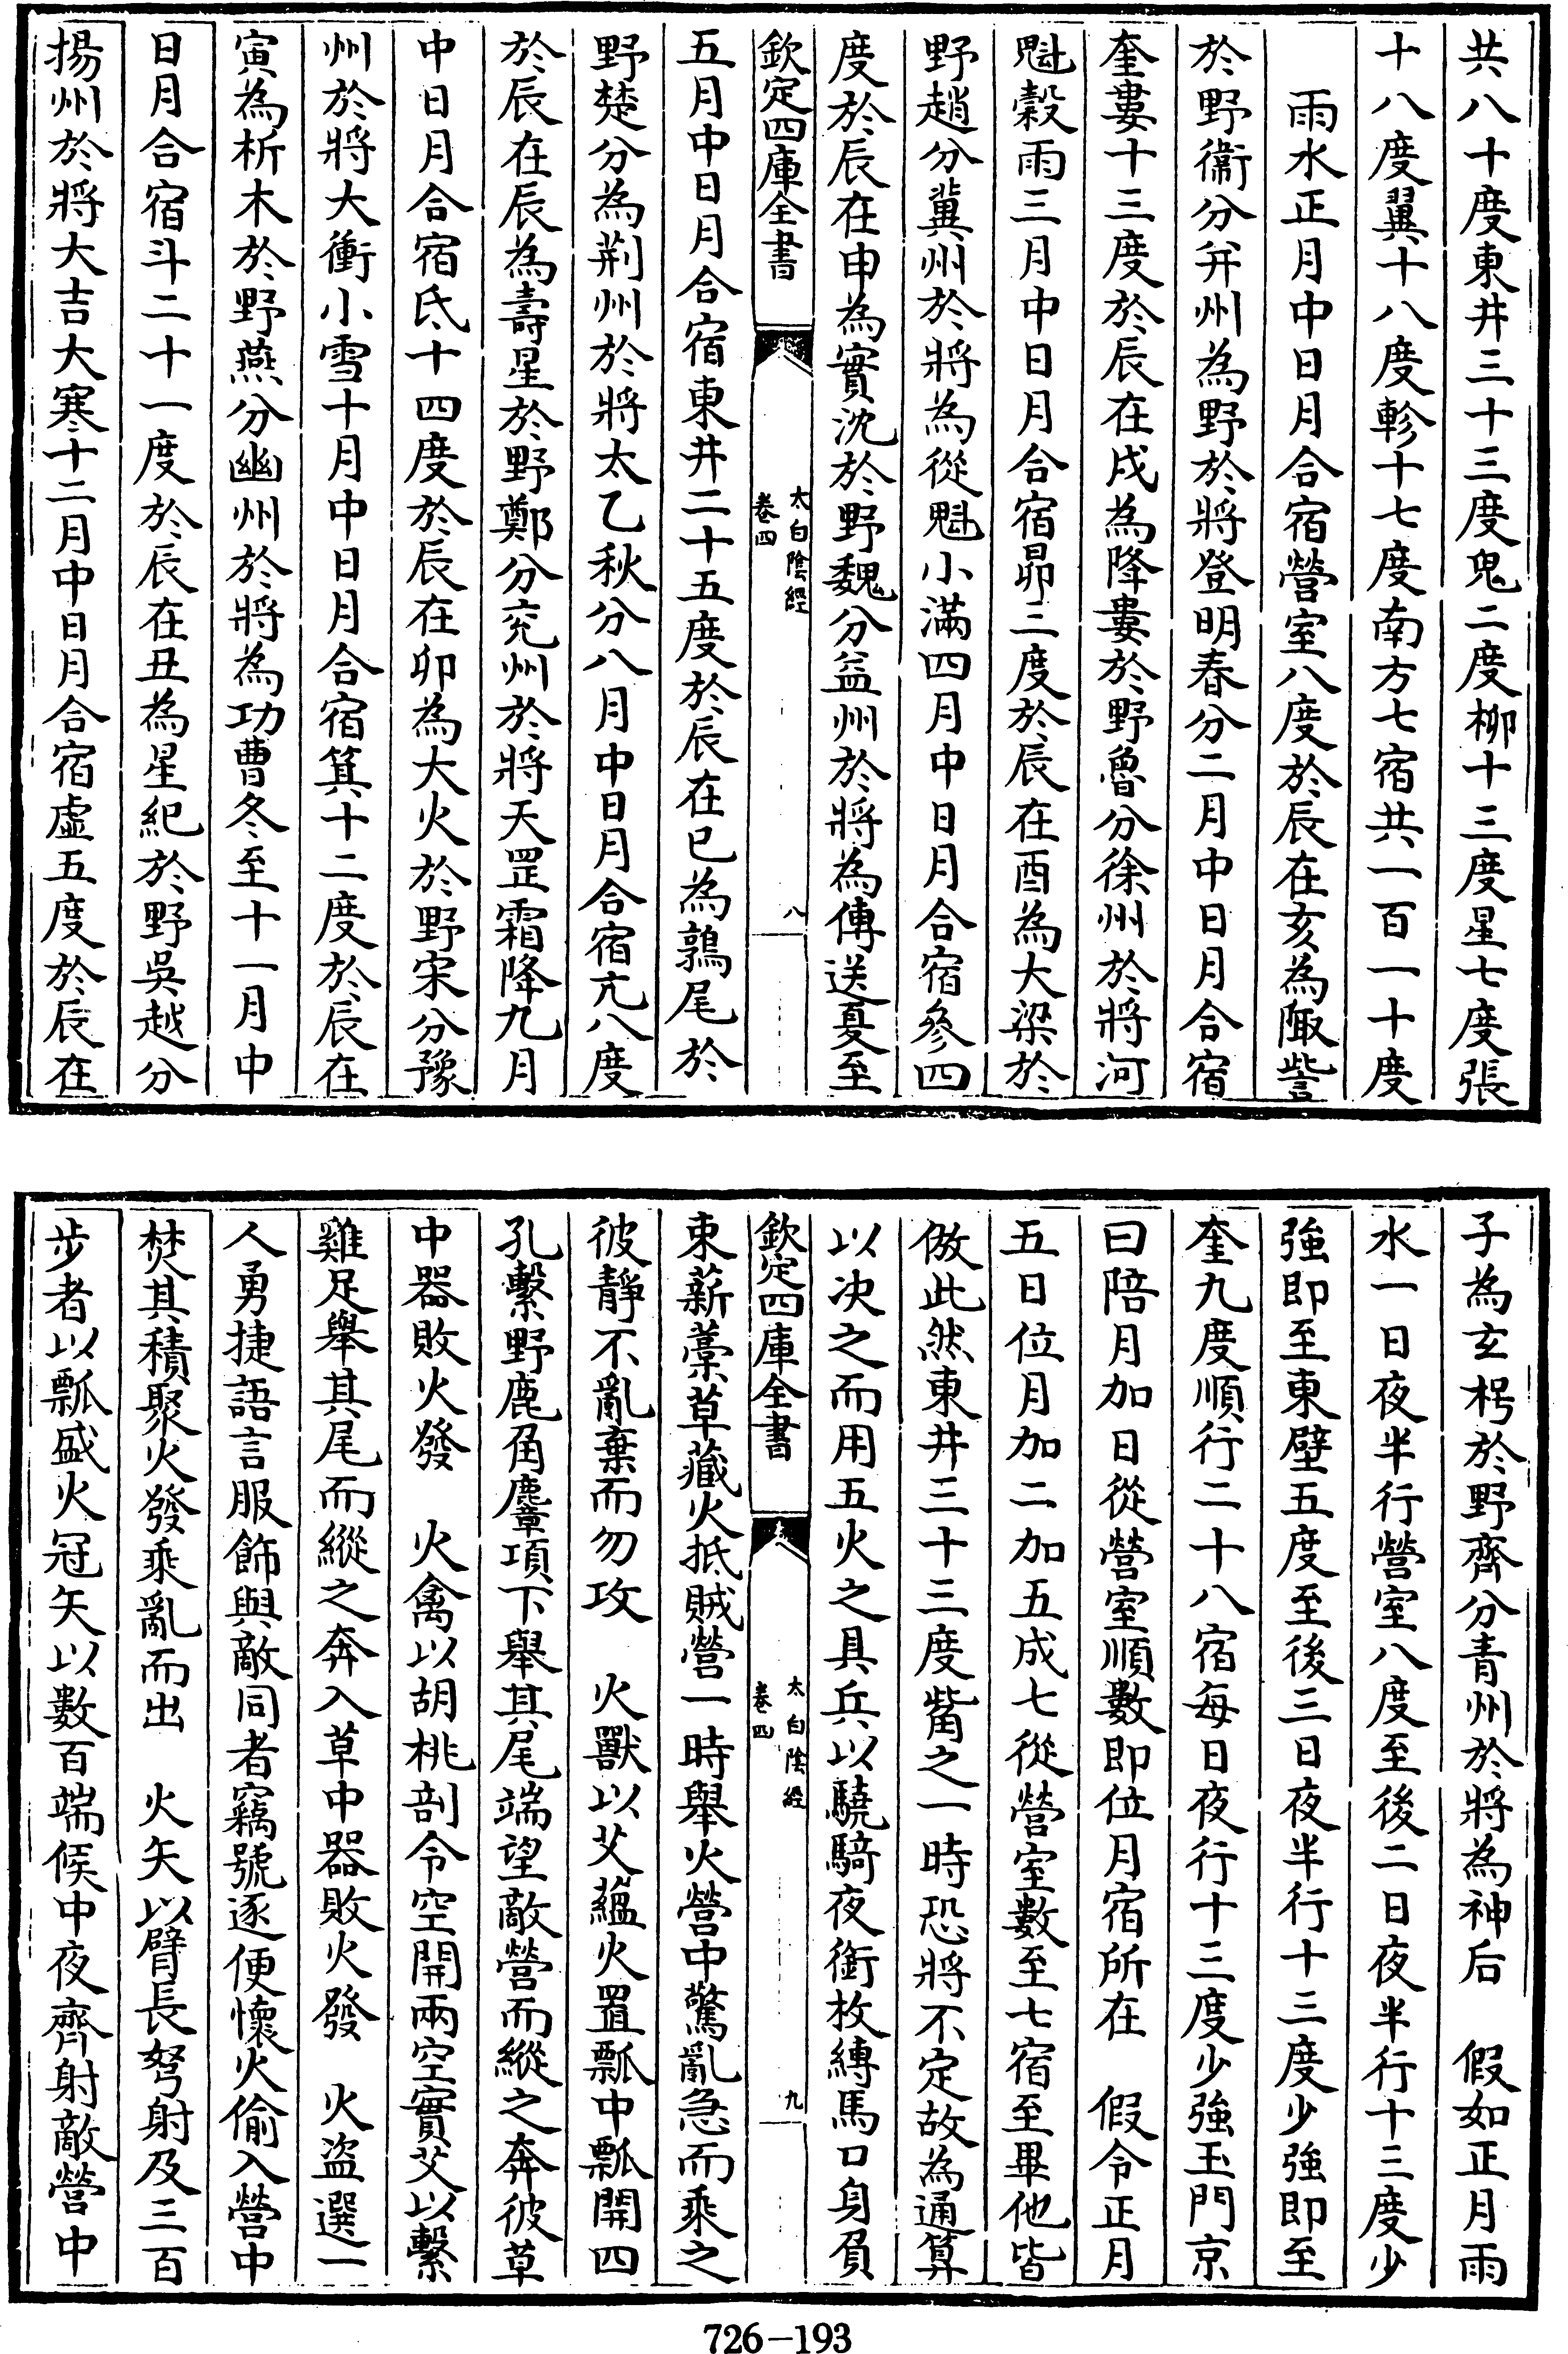 共八十度東井三十三度鬼二度柳十三度星七度張
十八度翼十八度軫十七度南方七宿共一百一十度
雨水正月中日月合宿營室八度於辰在亥為陬訾
於野衞分并州為野於將登明春分二月中日月合宿
奎婁十三度於辰在戌為降婁於野魯分徐州於將河
魁穀雨三月中日月合宿昴三度於辰在酉為大梁於
野趙分冀州於將為從魁小滿四月中日月合宿參四
度於辰在申為實沈於野魏分益州於將為傳送夏至
欽定四庫全書
太白陰經
卷四
八
五月中日月合宿東井二十五度於辰在巳為鶉尾於
野楚分為荆州於將太乙秋分八月中日月合宿亢八度
於辰在辰為壽星於野鄭分兖州於將天罡霜降九月
中日月合宿氐十四度於辰在卯為大火於野宋分豫
州於將大衝小雪十月中日月合宿箕十二度於辰在
寅為析木於野燕分幽州於將為功曹冬至十一月中
日月合宿斗二十一度於辰在丑為星紀於野吳越分
揚州於將大吉大寒十二月中日月合宿虛五度於辰在
子為玄枵於野齊分青州於將為神后　假如正月雨
水一日夜半行營室八度至後二日夜半行十三度少
強即至東壁五度至後三日夜半行十三度少強即至
奎九度順行二十八宿每日夜行十三度少強玉門京
曰陪月加日從營室順數即位月宿所在　假令正月
五日位月加二加五成七從營室數至七宿至畢他皆
倣此然東井三十三度觜之一時恐將不定故為通算
以决之而用五火之具兵以驍騎夜銜枚縛馬口身負
欽定四庫全書
太白陰經
卷四
九
束薪藁草藏火抵賊營一時舉火營中驚亂急而乘之
彼靜不亂棄而勿攻　火獸以艾蘊火置瓢中瓢開四
孔繫野鹿角麞項下舉其尾端望敵營而縱之奔彼草
中器敗火發　火禽以胡桃剖令空開兩空實艾以繫
雞足舉其尾而縱之奔入草中器敗火發　火盜選一
人勇捷語言服飾與敵同者竊號逐便懷火偷入營中
焚其積聚火發乘亂而出　火矢以臂長弩射及三百
步者以瓢盛火冠矢以數百端候中夜齊射敵營中
726-193